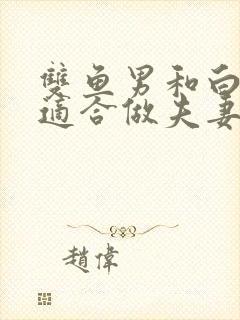 雙魚男和白
適合做夫妻
趙偉